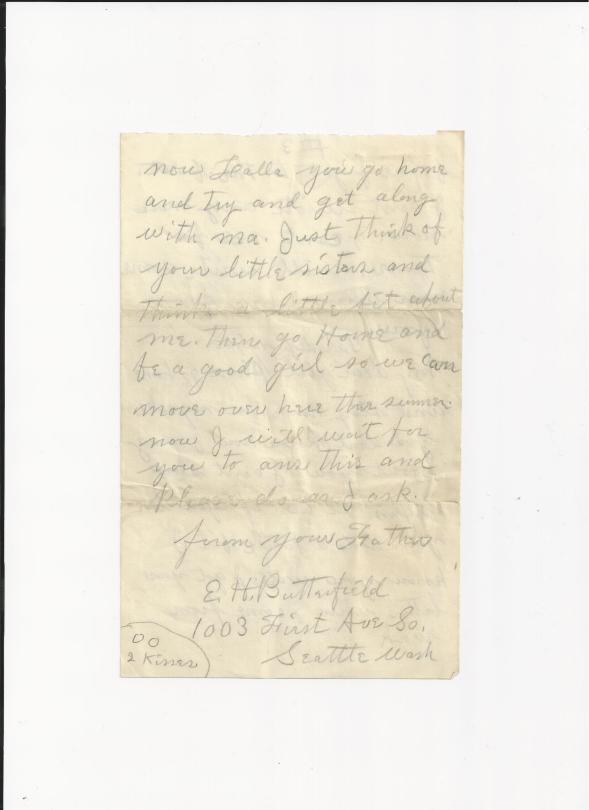 now Lealla you go home
and try and get along
with ma. Just think of
your little sisters and
think a little bit about
me. then go Home and
be a good girl so we can
move over here this summer.
now I will wait for
you to ans this and
Please do as I ask.
from your Father
E. H. Butterfield
1003 First Ave So.
Seattle Wash
OO
2 Kisses